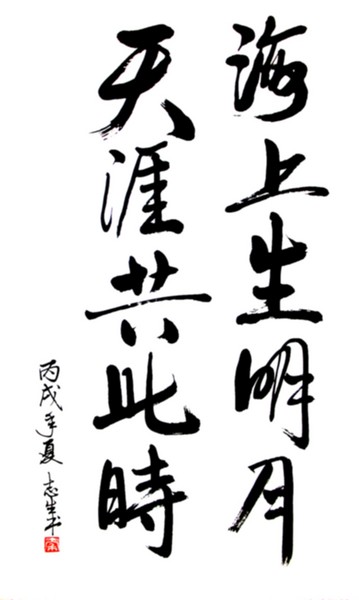 海上生明月
天涯共此時
丙戌年夏 志生书